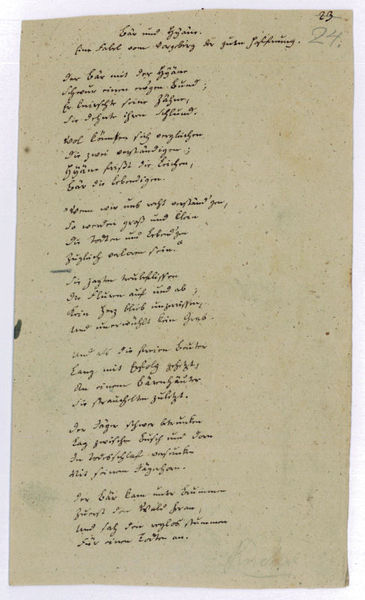 23
24.
Bär und Hyäne.
Eine Fabel vom Vorgebirg der guten Hoffnung.
Der Bär mit der Hyäne
Schwur einen ew'gen Bund;
Er knirschte seine Zähne,
Sie dehnte ihren Schlund.
Wol kämpften sich verglichen
Die zwei verständigen;
Hyäne frißt die Leichen,
Bär die Lebendigen.
"Wenn wir uns recht verständ'gen,
So werden groß und klein
Die Todten und Lebend'gen
Zugleich verloren sein."
Sie zogen
Die Fluren auf und ab;
Kein Herz blieb unzerrissen,
Und unerwühlt kein Grab.
Und als die freien Beuter
Lang mit Erfolg gehetzt,
An einem Bärenhäuter
Sie strauchelten zuletzt.
Der Jäger schwer betrunken
Lag zwischen Busch und Dorn
In Todesschlaf versunken
Mit seinem Jägerhorn.
Der Bär kam unter Brummen
Zuerst den Wald
Und sah den reglos stummen
Für einen Todten an.